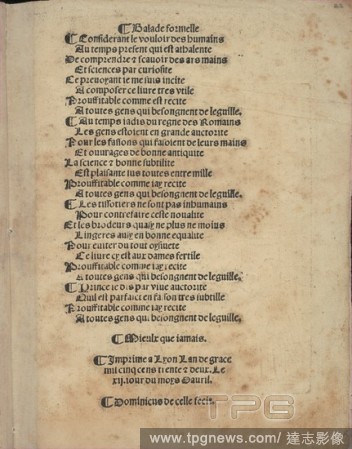 ¶ Balade formelle
¶ Considerant le vouloir des humains
Au temps present qui est athalente
De comprendre & scauoir des ars mains
Et sciences par curiosite
Ce preuoyant ie me suis incite
A composer ce liure tres vtile
Prouffitable comme est recite
A toutes gens qui besongnent de leguille.
¶ Au temps iadis du regne des Romains
Les gens estoient en grande auctorite
Pour les fassons qui faisoient de leurs mains
Et ouurages de bonne antiquite
La science & bonne subtilite
Est plaisante sus toutes entre mille
Prouffitable comme iay recite
A toutes gens qui besongnent de leguille.
¶ Les tissotiers ne sont pas inhumains
Pour contrefaire ceste noualite
Et les brodeurs quasy ne plus ne moins
Lingeres aussy en bonne equalite
Pour euiter du tout oysiuete
Ce liure cy est aux dames fertile
Prouffitable comme iay recite
A toutes gens qui besongnent de leguille.
¶ Prince ie dis par viue auctorite
Quil est parfaict en fasson tres subtille
Prouffitable comme iay recite
A toutes gens qui besongnent de leguille.
¶ Mieulx que iamais.
¶ Imprime a Lyon Lan de grace
mil cinq cens trente & deux. Le
xii. iour du moys Dauril.
¶ Dominicus de celle fecit.
TPG
www.tpgnews.com / 達志影像